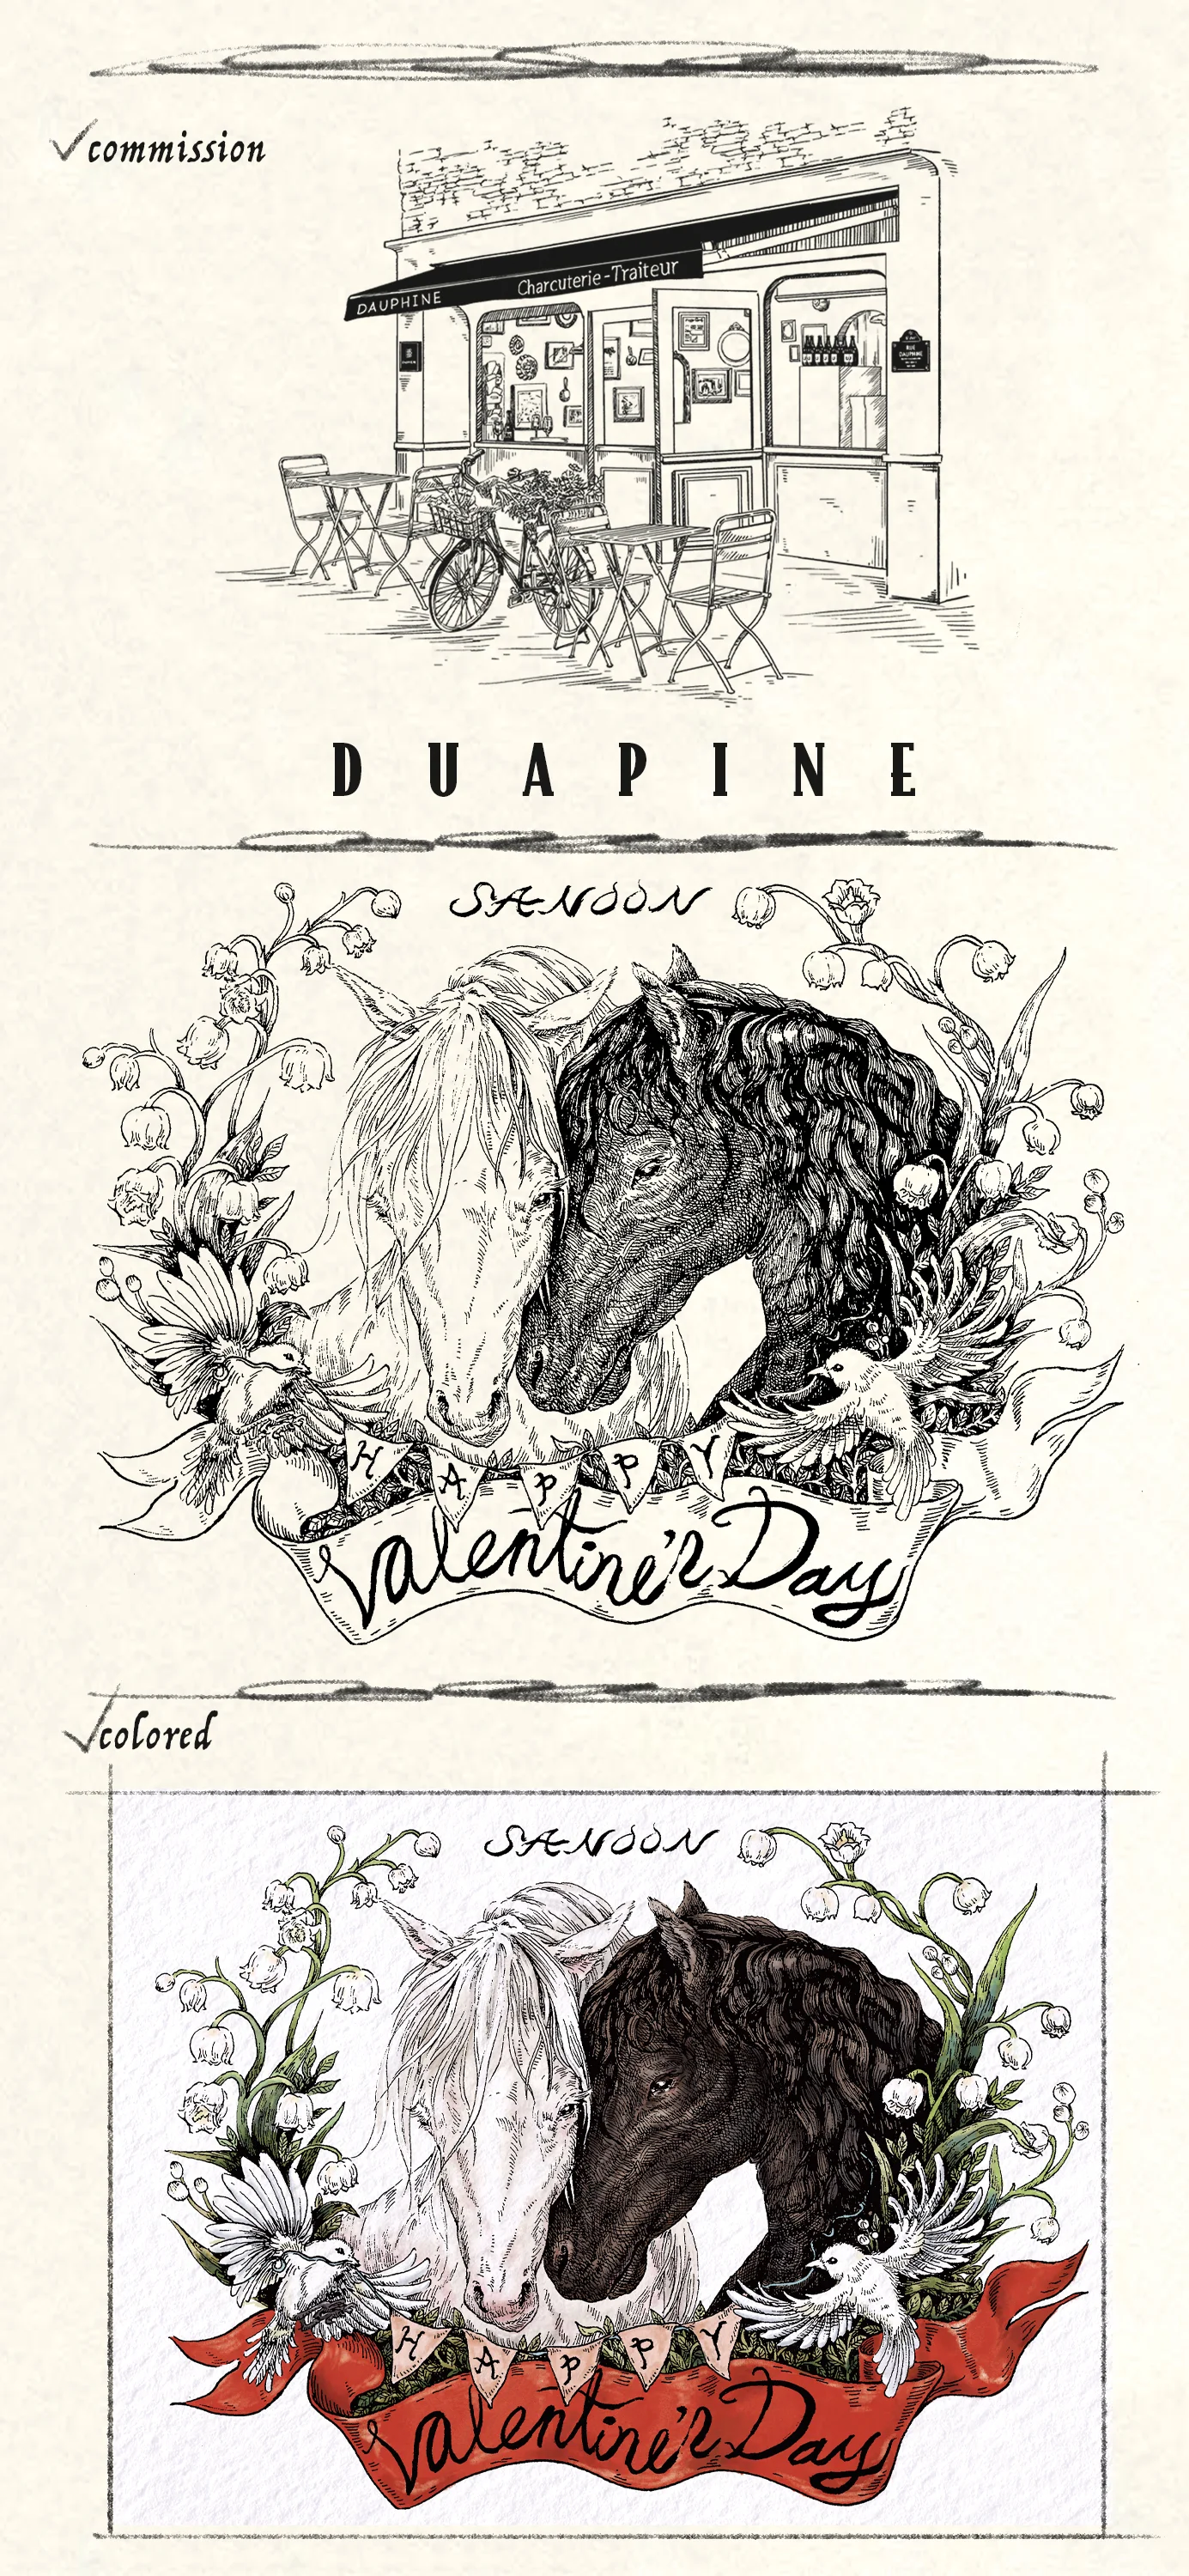 commission
DAUPHINE Charcuterie-Traiteur
RUE
DAUPHINE
DUAPINE
SANOON
HAPPY
Valentine's Day
colored
SANOON
HAPPY
Valentine's Day